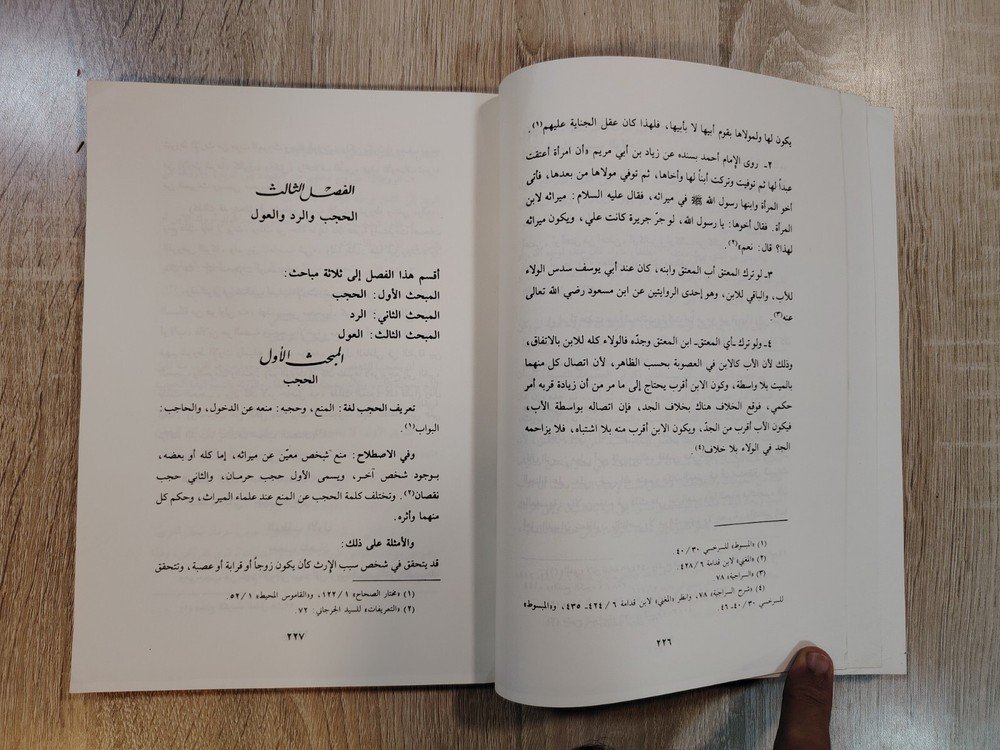 يكون لها ولمولاها بقوم أبيها لا بأبيها، فلهذا كان عقل الجناية عليهم(١).
٢ـ روى الإمام أحمد بسنده عن زياد بن أبي مريم «أن امرأة أعتقت
عبداً لها ثم توفيت وتركت أبناً لها وأخاها، ثم توفي مولاها من بعدها، فأتى
أخو المرأة وابنها رسول الله ﷺ في ميراثه، فقال عليه السلام: ميراثه لابن
المرأة. فقال أخوها: يا رسول الله، لو جرّ جريرة كانت علي، ويكون ميراثه
لهذا؟ قال: نعم»(٢).
٣ـ لو ترك المعتق أب المعتق وابنه، كان عند أبي يوسف سدس الولاء
للأب، والباقي للابن، وهو إحدى الروايتين عن ابن مسعود رضي الله تعالى
عنه(٣).
٤ـ ولو ترك ـأي المعتقـ ابن المعتق وجدّه فالولاء كله للابن بالاتفاق،
وذلك لأن الأب كالابن في العصوبة بحسب الظاهر، لأن اتصال كل منهما
بالميت بلا واسطة، وكون الابن أقرب يحتاج إلى ما مر من أن زيادة قربه أمر
حكمي، فوقع الخلاف هناك بخلاف الجد، فإن اتصاله بواسطة الأب،
فيكون الأب أقرب من الجدّ، ويكون الابن أقرب منه بلا اشتباه، فلا يزاحمه
الجد في الولاء بلا خلاف(٤).
(١) «المبسوط» للسرخسي ٣٠/ ٤٠.
(٢) «المغني» لابن قدامة ٦/ ٤٢٨.
(٣) «السراجية» ٧٨.
(٤) «شرح السراجية» ٧٨، وانظر «المغني» لابن قدامة ٦/ ٤٢٤ـ ٤٣٥، و«المبسوط»
للسرخسي ٣٠/ ٤٠ـ ٤٦.
٢٢٦
الفصل الثالث
الحجب والرد والعول
أقسم هذا الفصل إلى ثلاثة مباحث:
المبحث الأول: الحجب
المبحث الثاني: الرد
المبحث الثالث: العول
المبحث الأول
الحجب
تعريف الحجب لغة: المنع، وحجبه: منعه عن الدخول، والحاجب:
البواب(١).
وفي الاصطلاح: منع شخص معيّن عن ميراثه، إما كله أو بعضه،
بوجود شخص آخر، ويسمى الأول حجب حرمان، والثاني حجب
نقصان(٢). وتختلف كلمة الحجب عن المنع عند علماء الميراث، وحكم كل
منهما وأثره.
والأمثلة على ذلك:
قد يتحقق في شخص سبب الإرث كأن يكون زوجاً أو قرابة أو عصبة، وتتحقق
(١) «مختار الصحاح» ١/ ١٢٢، و«القاموس المحيط» ١/ ٥٢.
(٢) «التعريفات» للسيد الجرجاني: ٧٢.
٢٢٧